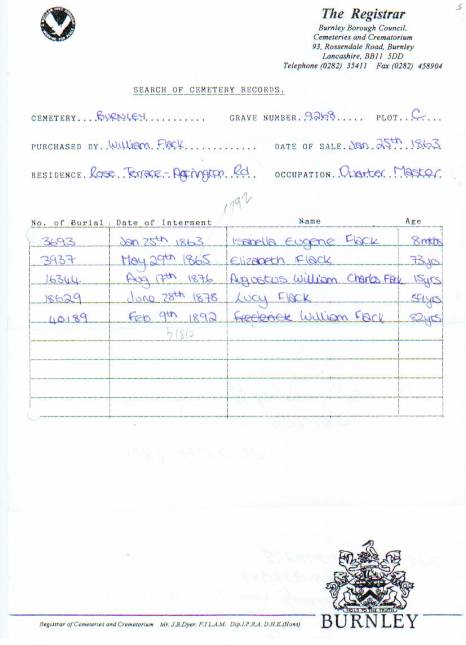 5
The Registrar
Burnley Borough Council,
Cemeteries and Crematorium
93, Rossendale Road, Burnley
Lancashire, BB11 5DD
Telephone (0282) 35411 Fax (0282) 458904
SEARCH OF CEMETERY RECORDS.
CEMETERY....BURNLEY........... GRAVE NUMBER.9268..... PLOT..C....
PURCHASED BY..William Flack............. DATE OF SALE.Jan 25th 1863
RESIDENCE.Rose Terrace - Accrington Rd. OCCUPATION.Quarter Master.
1792
No. of Burial Date of Interment Name Age
3693 Jan 25th 1863 Isabella Eugene Flack 8mths
3937 May 29th 1865 Elizabeth Flack 73yrs
16344 Aug 17th 1876 Augustus William Charles Flack 15yrs
18629 June 28th 1878 Lucy Flack 54yrs
40189 Feb 9th 1892 Frederick William Flack 82yrs
HOLD TO THE TRUTH
BURNLEY
Registrar of Cemeteries and Crematorium Mr. J.B.Dyer. F.I.L.A.M. Dip.I.P.R.A. D.H.E.(Hons)